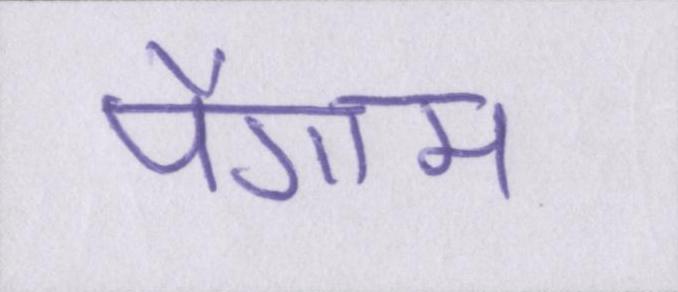 पैगाम